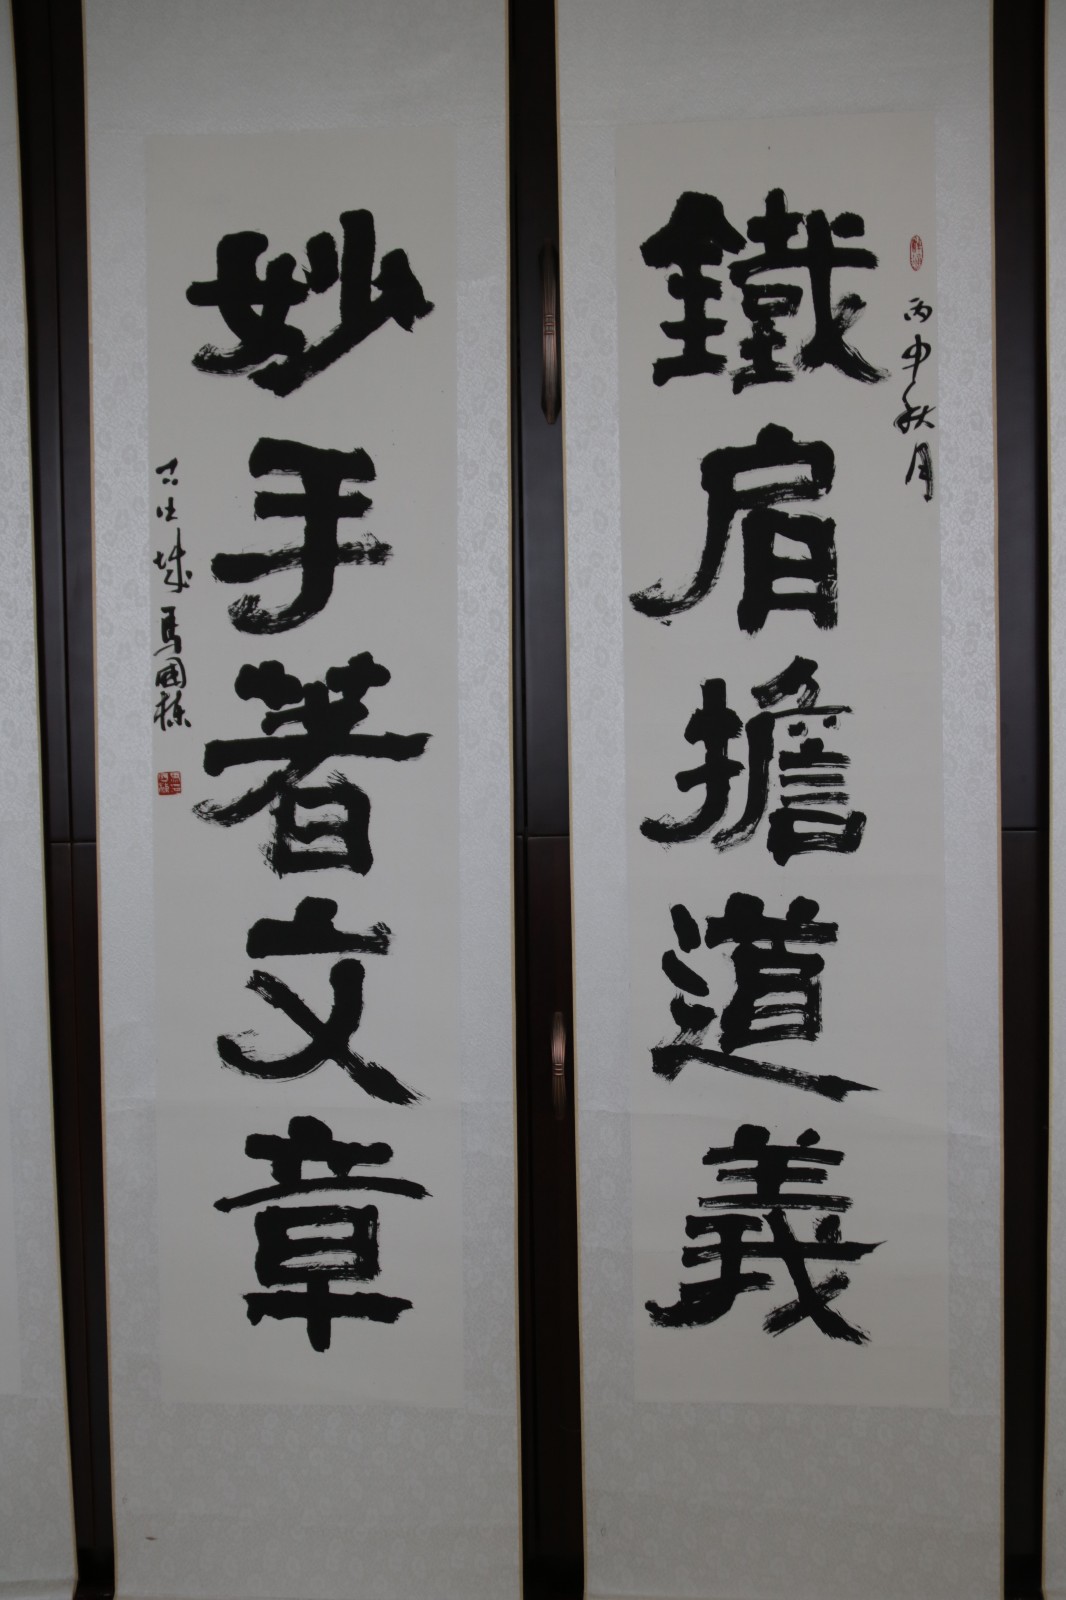 鐵肩擔道義
丙申秋月
妙手著文章
古吐城馬國棟